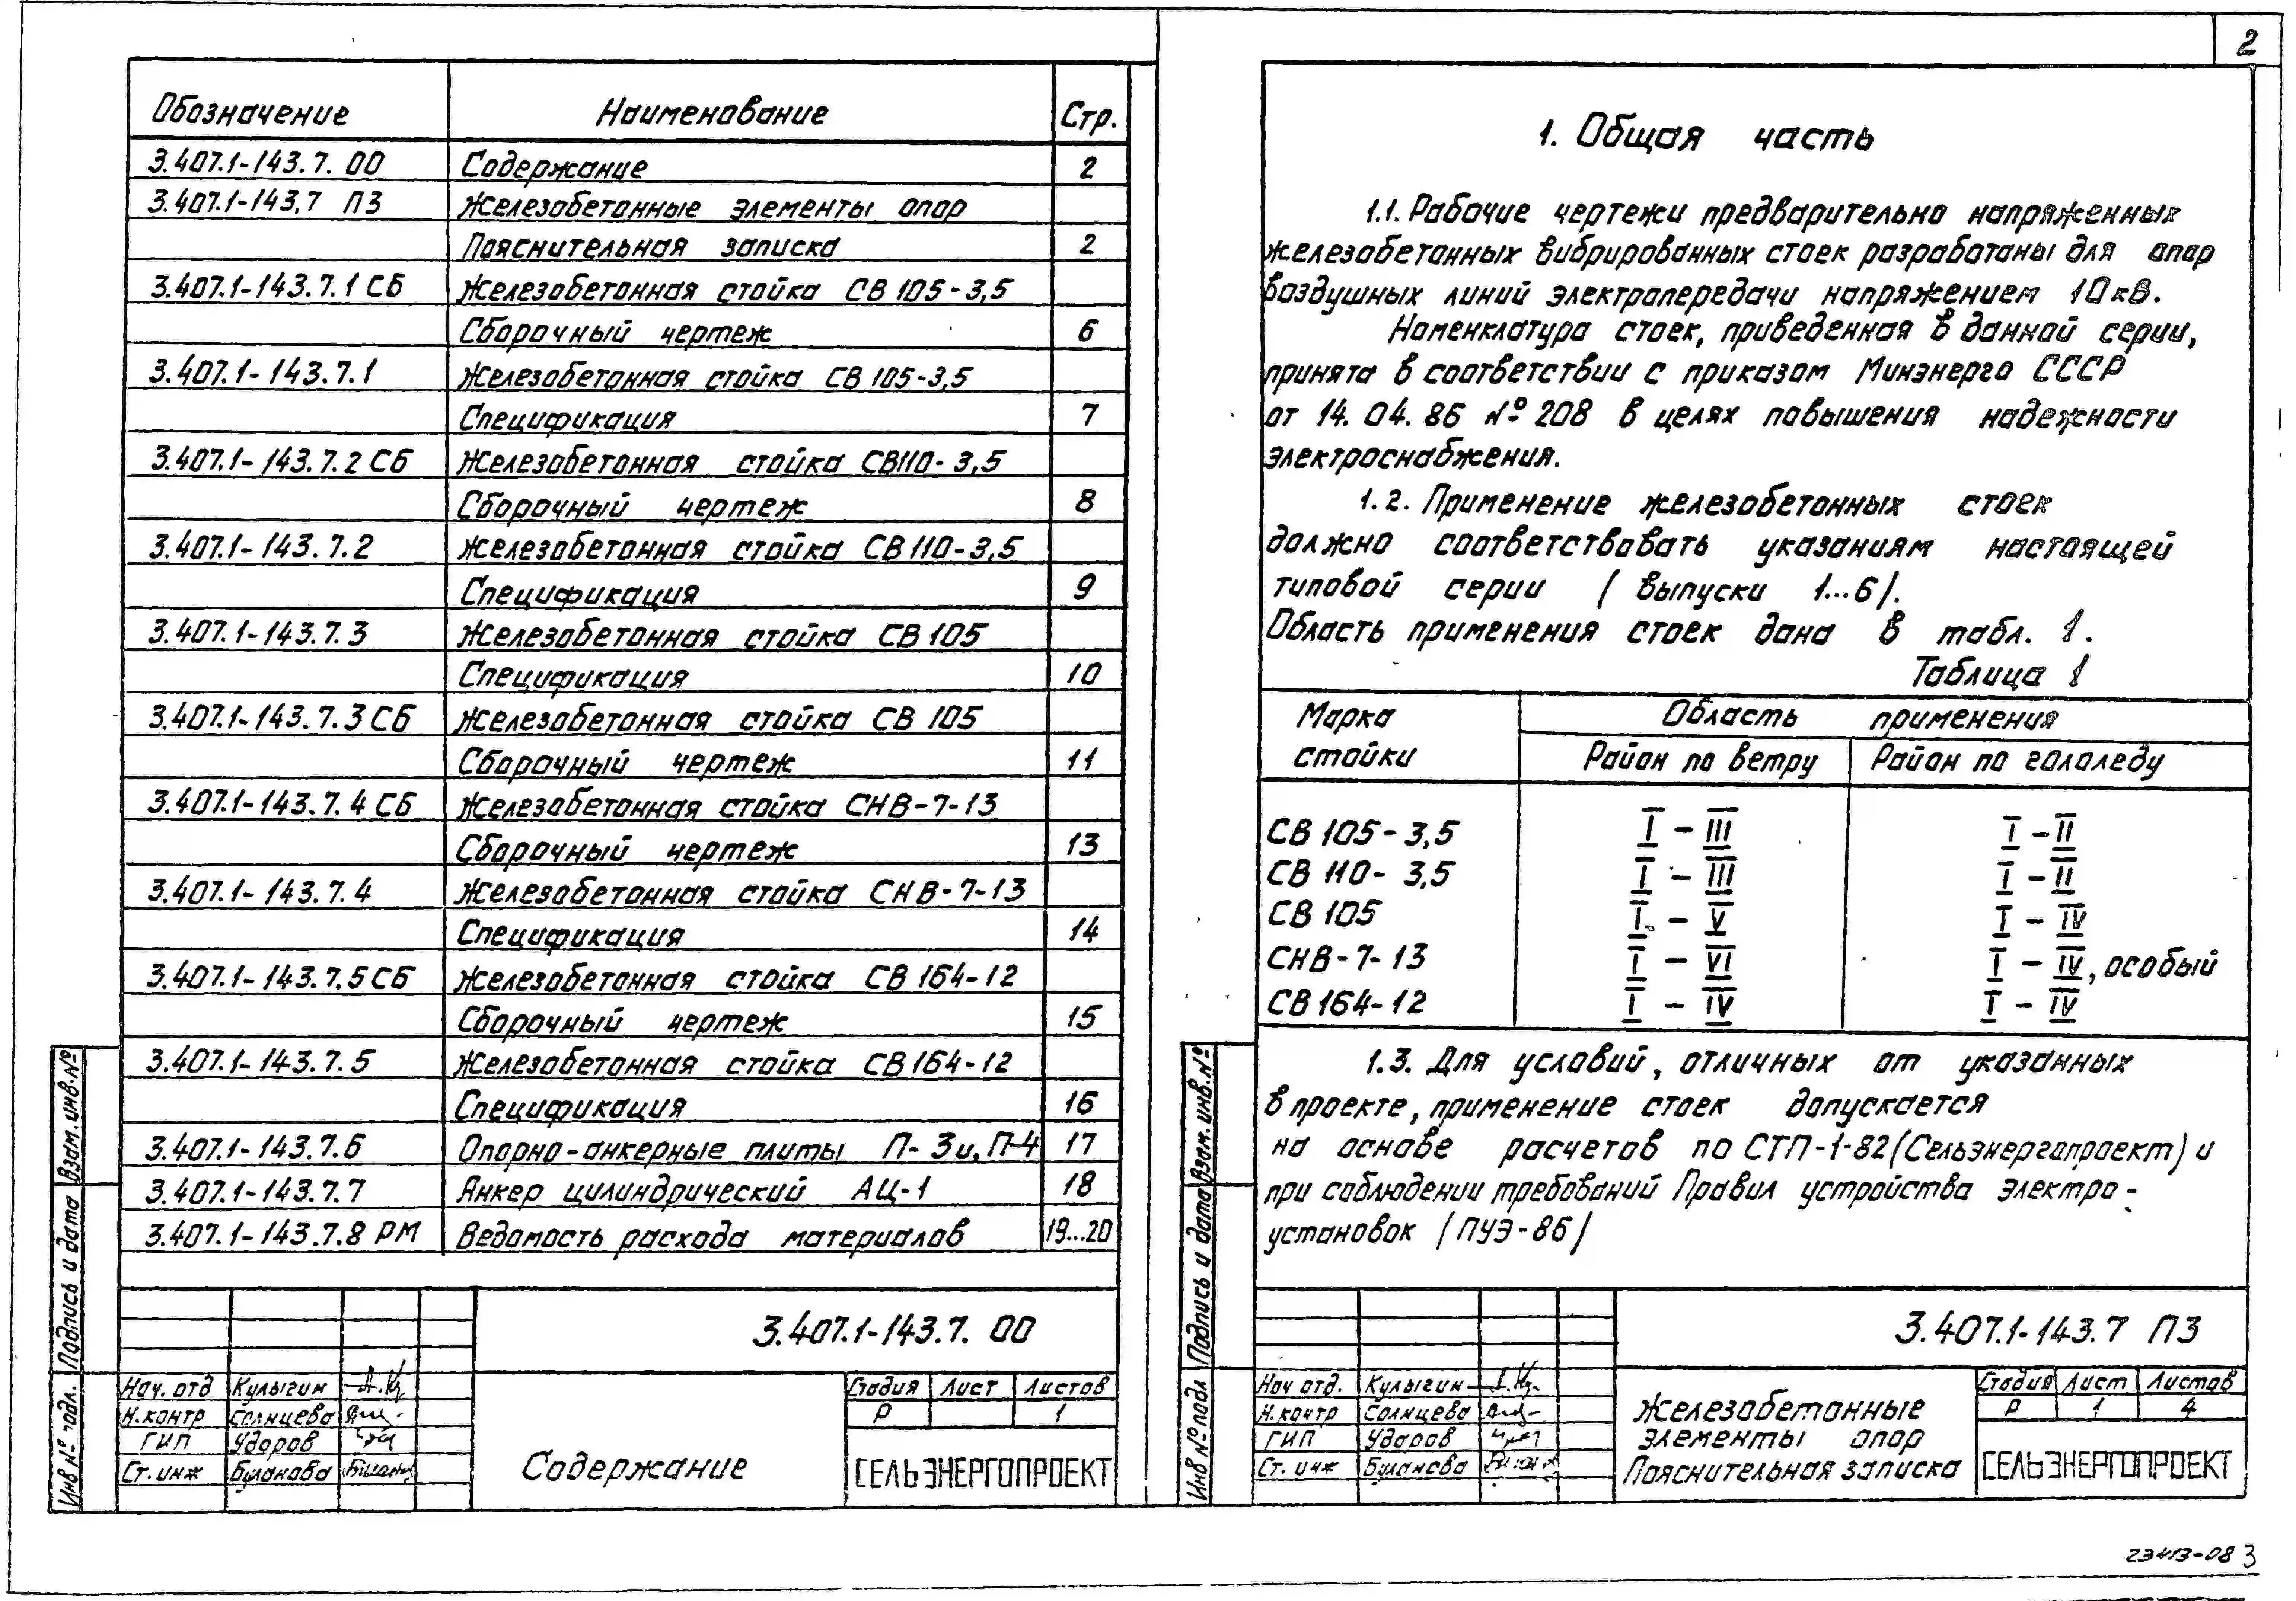 2
Обозначение Наименование Стр.
3.407.1-143.7. 00 Содержание 2
3.407.1-143.7 ПЗ Железобетонные элементы опор
Пояснительная записка 2
3.407.1-143.7.1 СБ Железобетонная стойка СВ 105-3,5
Сборочный чертеж 6
3.407.1-143.7.1 Железобетонная стойка СВ 105-3,5
Спецификация 7
3.407.1-143.7.2 СБ Железобетонная стойка СВ110-3,5
Сборочный чертеж 8
3.407.1-143.7.2 Железобетонная стойка СВ 110-3,5
Спецификация 9
3.407.1-143.7.3 Железобетонная стойка СВ 105
Спецификация 10
3.407.1-143.7.3 СБ Железобетонная стойка СВ 105
Сборочный чертеж 11
3.407.1-143.7.4 СБ Железобетонная стойка СНВ-7-13
Сборочный чертеж 13
3.407.1-143.7.4 Железобетонная стойка СНВ-7-13
Спецификация 14
3.407.1-143.7.5 СБ Железобетонная стойка СВ 164-12
Сборочный чертеж 15
3.407.1-143.7.5 Железобетонная стойка СВ 164-12
Спецификация 16
3.407.1-143.7.6 Опорно-анкерные плиты П-3и, П-4 17
3.407.1-143.7.7 Анкер цилиндрический АЦ-1 18
3.407.1-143.7.8 РМ Ведомость расхода материалов 19...20
Взам. инв. №
Подпись и дата
Инв № подл.
3.407.1-143.7. 00
Нач. отд Кулыгин
Н.контр Солнцева
ГИП Ударов
Ст. инж Буланова
Содержание
Стадия Лист Листов
Р 1
СЕЛЬЭНЕРГОПРОЕКТ
1. Общая часть
1.1. Рабочие чертежи предварительно напряженных
железобетонных вибрированных стоек разработаны для опор
воздушных линий электропередачи напряжением 10 кВ.
Номенклатура стоек, приведенная в данной серии,
принята в соответствии с приказом Минэнерго СССР
от 14. 04. 86 № 208 в целях повышения надежности
электроснабжения.
1.2. Применение железобетонных стоек
должно соответствовать указаниям настоящей
типовой серии (выпуски 1...6).
Область применения стоек дана в табл. 1.
Таблица 1
Марка стойки Область применения
Район по ветру Район по гололеду
СВ 105-3,5 I - III I - II
СВ 110-3,5 I - III I - II
СВ 105 I - V I - IV
СНВ-7-13 I - VI I - IV, особый
СВ 164-12 I - IV I - IV
1.3. Для условий, отличных от указанных
в проекте, применение стоек допускается
на основе расчетов по СТП-1-82 (Сельэнергопроект) и
при соблюдении требований Правил устройства электро-
установок (ПУЭ-86)
Взам. инв. №
Подпись и дата
Инв № подл
3.407.1-143.7 ПЗ
Нач отд. Кулыгин
Н.контр Солнцева
ГИП Ударов
Ст. инж Буланова
Железобетонные
элементы опор
Пояснительная записка
Стадия Лист Листов
Р 1 4
СЕЛЬЭНЕРГОПРОЕКТ
23413-08 3